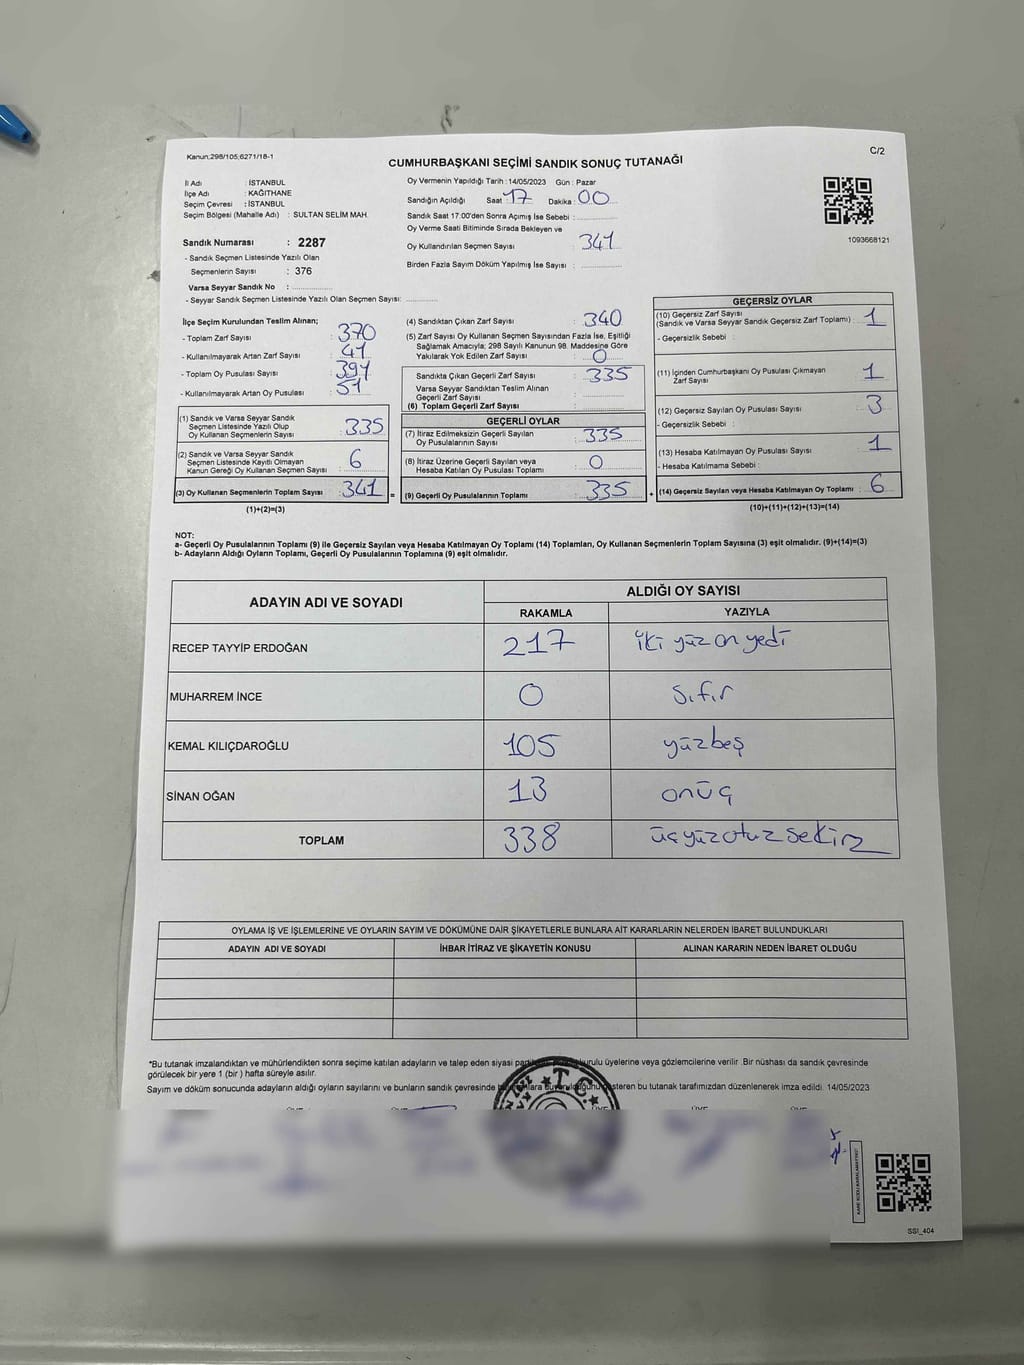 Kanun;298/105;6271/18-1
C/2
CUMHURBAŞKANI SEÇİMİ SANDIK SONUÇ TUTANAĞI
İl Adı : İSTANBUL
İlçe Adı : KAĞITHANE
Seçim Çevresi : İSTANBUL
Seçim Bölgesi (Mahalle Adı) : SULTAN SELİM MAH.
Sandık Numarası : 2287
- Sandık Seçmen Listesinde Yazılı Olan
Seçmenlerin Sayısı : 376
Varsa Seyyar Sandık No :
- Seyyar Sandık Seçmen Listesinde Yazılı Olan Seçmen Sayısı:
Oy Vermenin Yapıldığı Tarih : 14/05/2023 Gün : Pazar
Sandığın Açıldığı Saat 17 Dakika 00
Sandık Saat 17:00'den Sonra Açımış İse Sebebi :
Oy Verme Saati Bitiminde Sırada Bekleyen ve
Oy Kullandırılan Seçmen Sayısı : 341
Birden Fazla Sayım Döküm Yapılmış İse Sayısı :
1093668121
İlçe Seçim Kurulundan Teslim Alınan;
- Toplam Zarf Sayısı : 370
- Kullanılmayarak Artan Zarf Sayısı : 41
- Toplam Oy Pusulası Sayısı : 394
- Kullanılmayarak Artan Oy Pusulası : 51
(1) Sandık ve Varsa Seyyar Sandık
Seçmen Listesinde Yazılı Olup
Oy Kullanan Seçmenlerin Sayısı : 335
(2) Sandık ve Varsa Seyyar Sandık
Seçmen Listesinde Kayıtlı Olmayan
Kanun Gereği Oy Kullanan Seçmen Sayısı : 6
(3) Oy Kullanan Seçmenlerin Toplam Sayısı : 341 =
(1)+(2)=(3)
(4) Sandıktan Çıkan Zarf Sayısı : 340
(5) Zarf Sayısı Oy Kullanan Seçmen Sayısından Fazla İse, Eşitliği
Sağlamak Amacıyla; 298 Sayılı Kanunun 98. Maddesine Göre
Yakılarak Yok Edilen Zarf Sayısı : 0
Sandıkta Çıkan Geçerli Zarf Sayısı : 335
Varsa Seyyar Sandıktan Teslim Alınan
Geçerli Zarf Sayısı :
(6) Toplam Geçerli Zarf Sayısı :
GEÇERLİ OYLAR
(7) İtiraz Edilmeksizin Geçerli Sayılan
Oy Pusulalarının Sayısı : 335
(8) İtiraz Üzerine Geçerli Sayılan veya
Hesaba Katılan Oy Pusulası Toplamı : 0
(9) Geçerli Oy Pusulalarının Toplamı : 335 +
GEÇERSİZ OYLAR
(10) Geçersiz Zarf Sayısı
(Sandık ve Varsa Seyyar Sandık Geçersiz Zarf Toplamı) : 1
- Geçersizlik Sebebi :
(11) İçinden Cumhurbaşkanı Oy Pusulası Çıkmayan
Zarf Sayısı : 1
(12) Geçersiz Sayılan Oy Pusulası Sayısı : 3
- Geçersizlik Sebebi :
(13) Hesaba Katılmayan Oy Pusulası Sayısı : 1
- Hesaba Katılmama Sebebi :
(14) Geçersiz Sayılan veya Hesaba Katılmayan Oy Toplamı : 6
(10)+(11)+(12)+(13)=(14)
NOT:
a- Geçerli Oy Pusulalarının Toplamı (9) ile Geçersiz Sayılan veya Hesaba Katılmayan Oy Toplamı (14) Toplamları, Oy Kullanan Seçmenlerin Toplam Sayısına (3) eşit olmalıdır. (9)+(14)=(3)
b- Adayların Aldığı Oyların Toplamı, Geçerli Oy Pusulalarının Toplamına (9) eşit olmalıdır.
ADAYIN ADI VE SOYADI
ALDIĞI OY SAYISI
RAKAMLA YAZIYLA
RECEP TAYYİP ERDOĞAN 217 iki yüz on yedi
MUHARREM İNCE 0 sıfır
KEMAL KILIÇDAROĞLU 105 yüzbeş
SİNAN OĞAN 13 onüç
TOPLAM 338 üçyüzotuzsekiz
OYLAMA İŞ VE İŞLEMLERİNE VE OYLARIN SAYIM VE DÖKÜMÜNE DAİR ŞİKAYETLERLE BUNLARA AİT KARARLARIN NELERDEN İBARET BULUNDUKLARI
ADAYIN ADI VE SOYADI İHBAR İTİRAZ VE ŞİKAYETİN KONUSU ALINAN KARARIN NEDEN İBARET OLDUĞU
*Bu tutanak imzalandıktan ve mühürlendikten sonra seçime katılan adayların ve talep eden siyasi kurulu üyelerine veya gözlemcilerine verilir. Bir nüshası da sandık çevresinde
görülecek bir yere 1 (bir ) hafta süreyle asılır.
Sayım ve döküm sonucunda adayların aldığı oyların sayılarını ve bunların sandık çevresinde gösteren bu tutanak tarafımızdan düzenlenerek imza edildi. 14/05/2023
T.C.
SSI_404